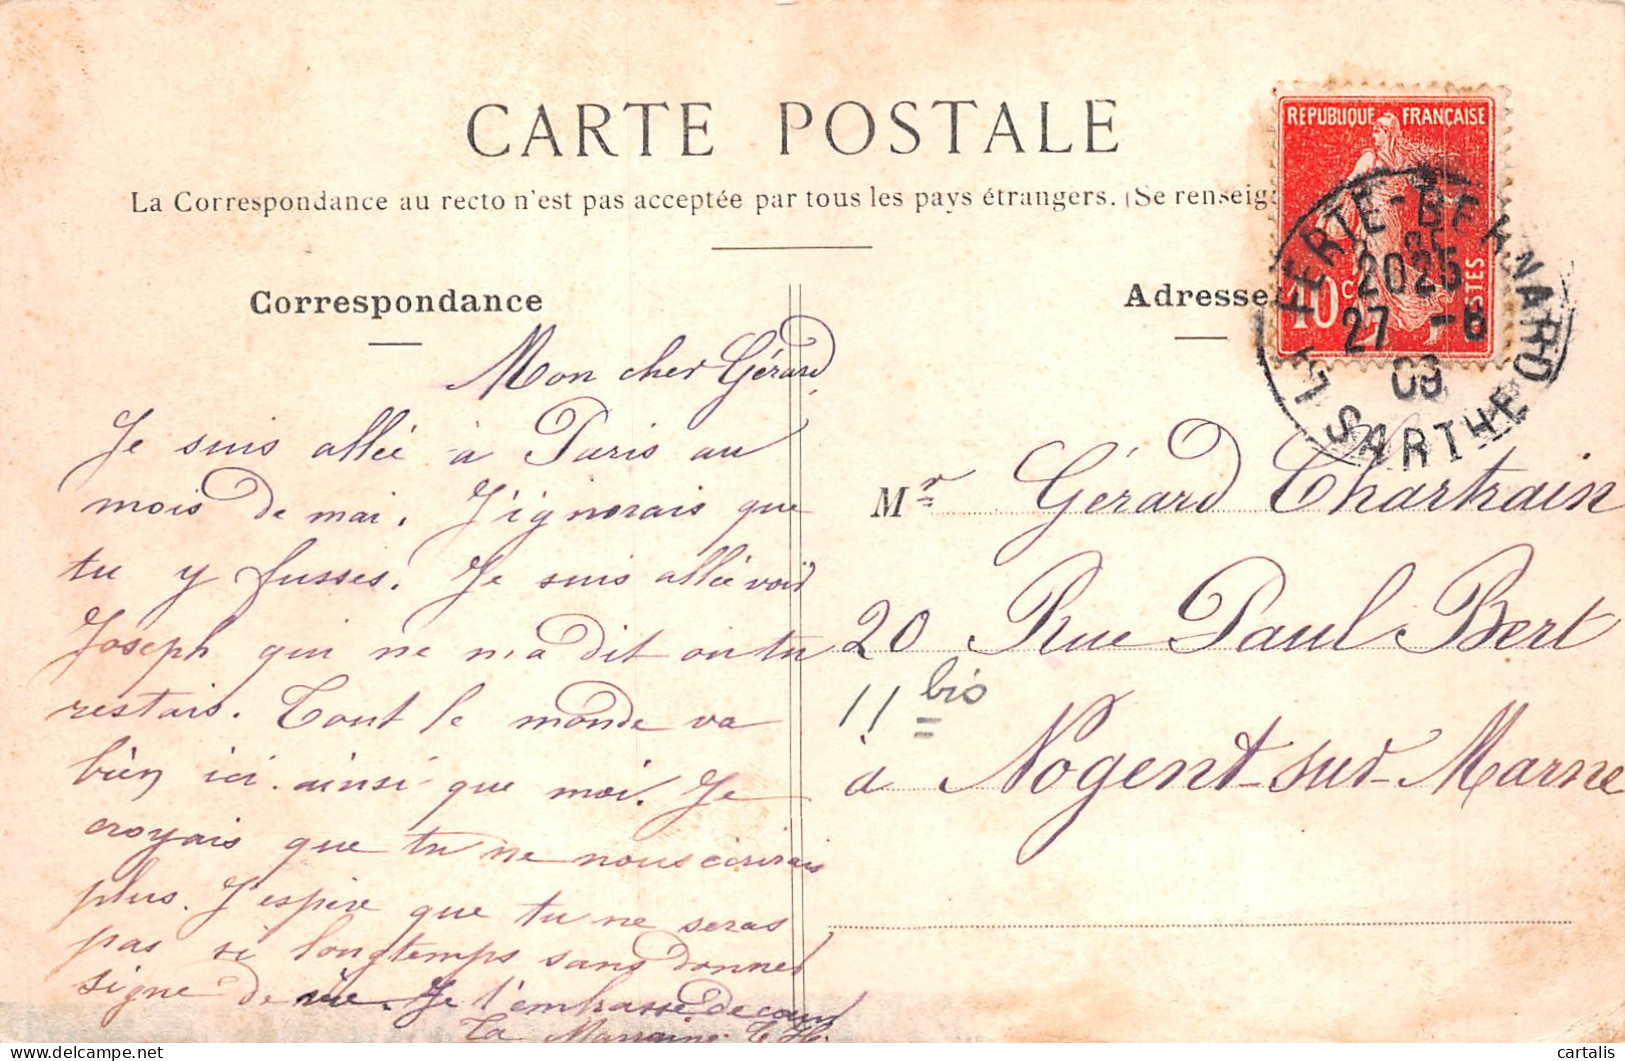 CARTE POSTALE
La Correspondance au recto n'est pas acceptée par tous les pays étrangers. (Se renseig
REPUBLIQUE FRANÇAISE
10c
POSTES
LA FERTE-BERNARD
2025
27 -6
09
SARTHE
Correspondance
Adresse
Mon cher Gérard,
Je suis allée à Paris au
mois de mai. J'ignorais que
tu y fusses. Je suis allée voir
Joseph qui ne m'a dit où tu
restais. Tout le monde va
bien ici ainsi que moi. Je
croyais que tu ne nous écrirais
plus. J'espère que tu ne seras
pas si longtemps sans donner
signe de vie. Je t'embrasse de cœur
Ta Marraine
Mr Gérard Chartrain
20 Rue Paul Bert
11 bis
à Nogent-sur-Marne
cartalis